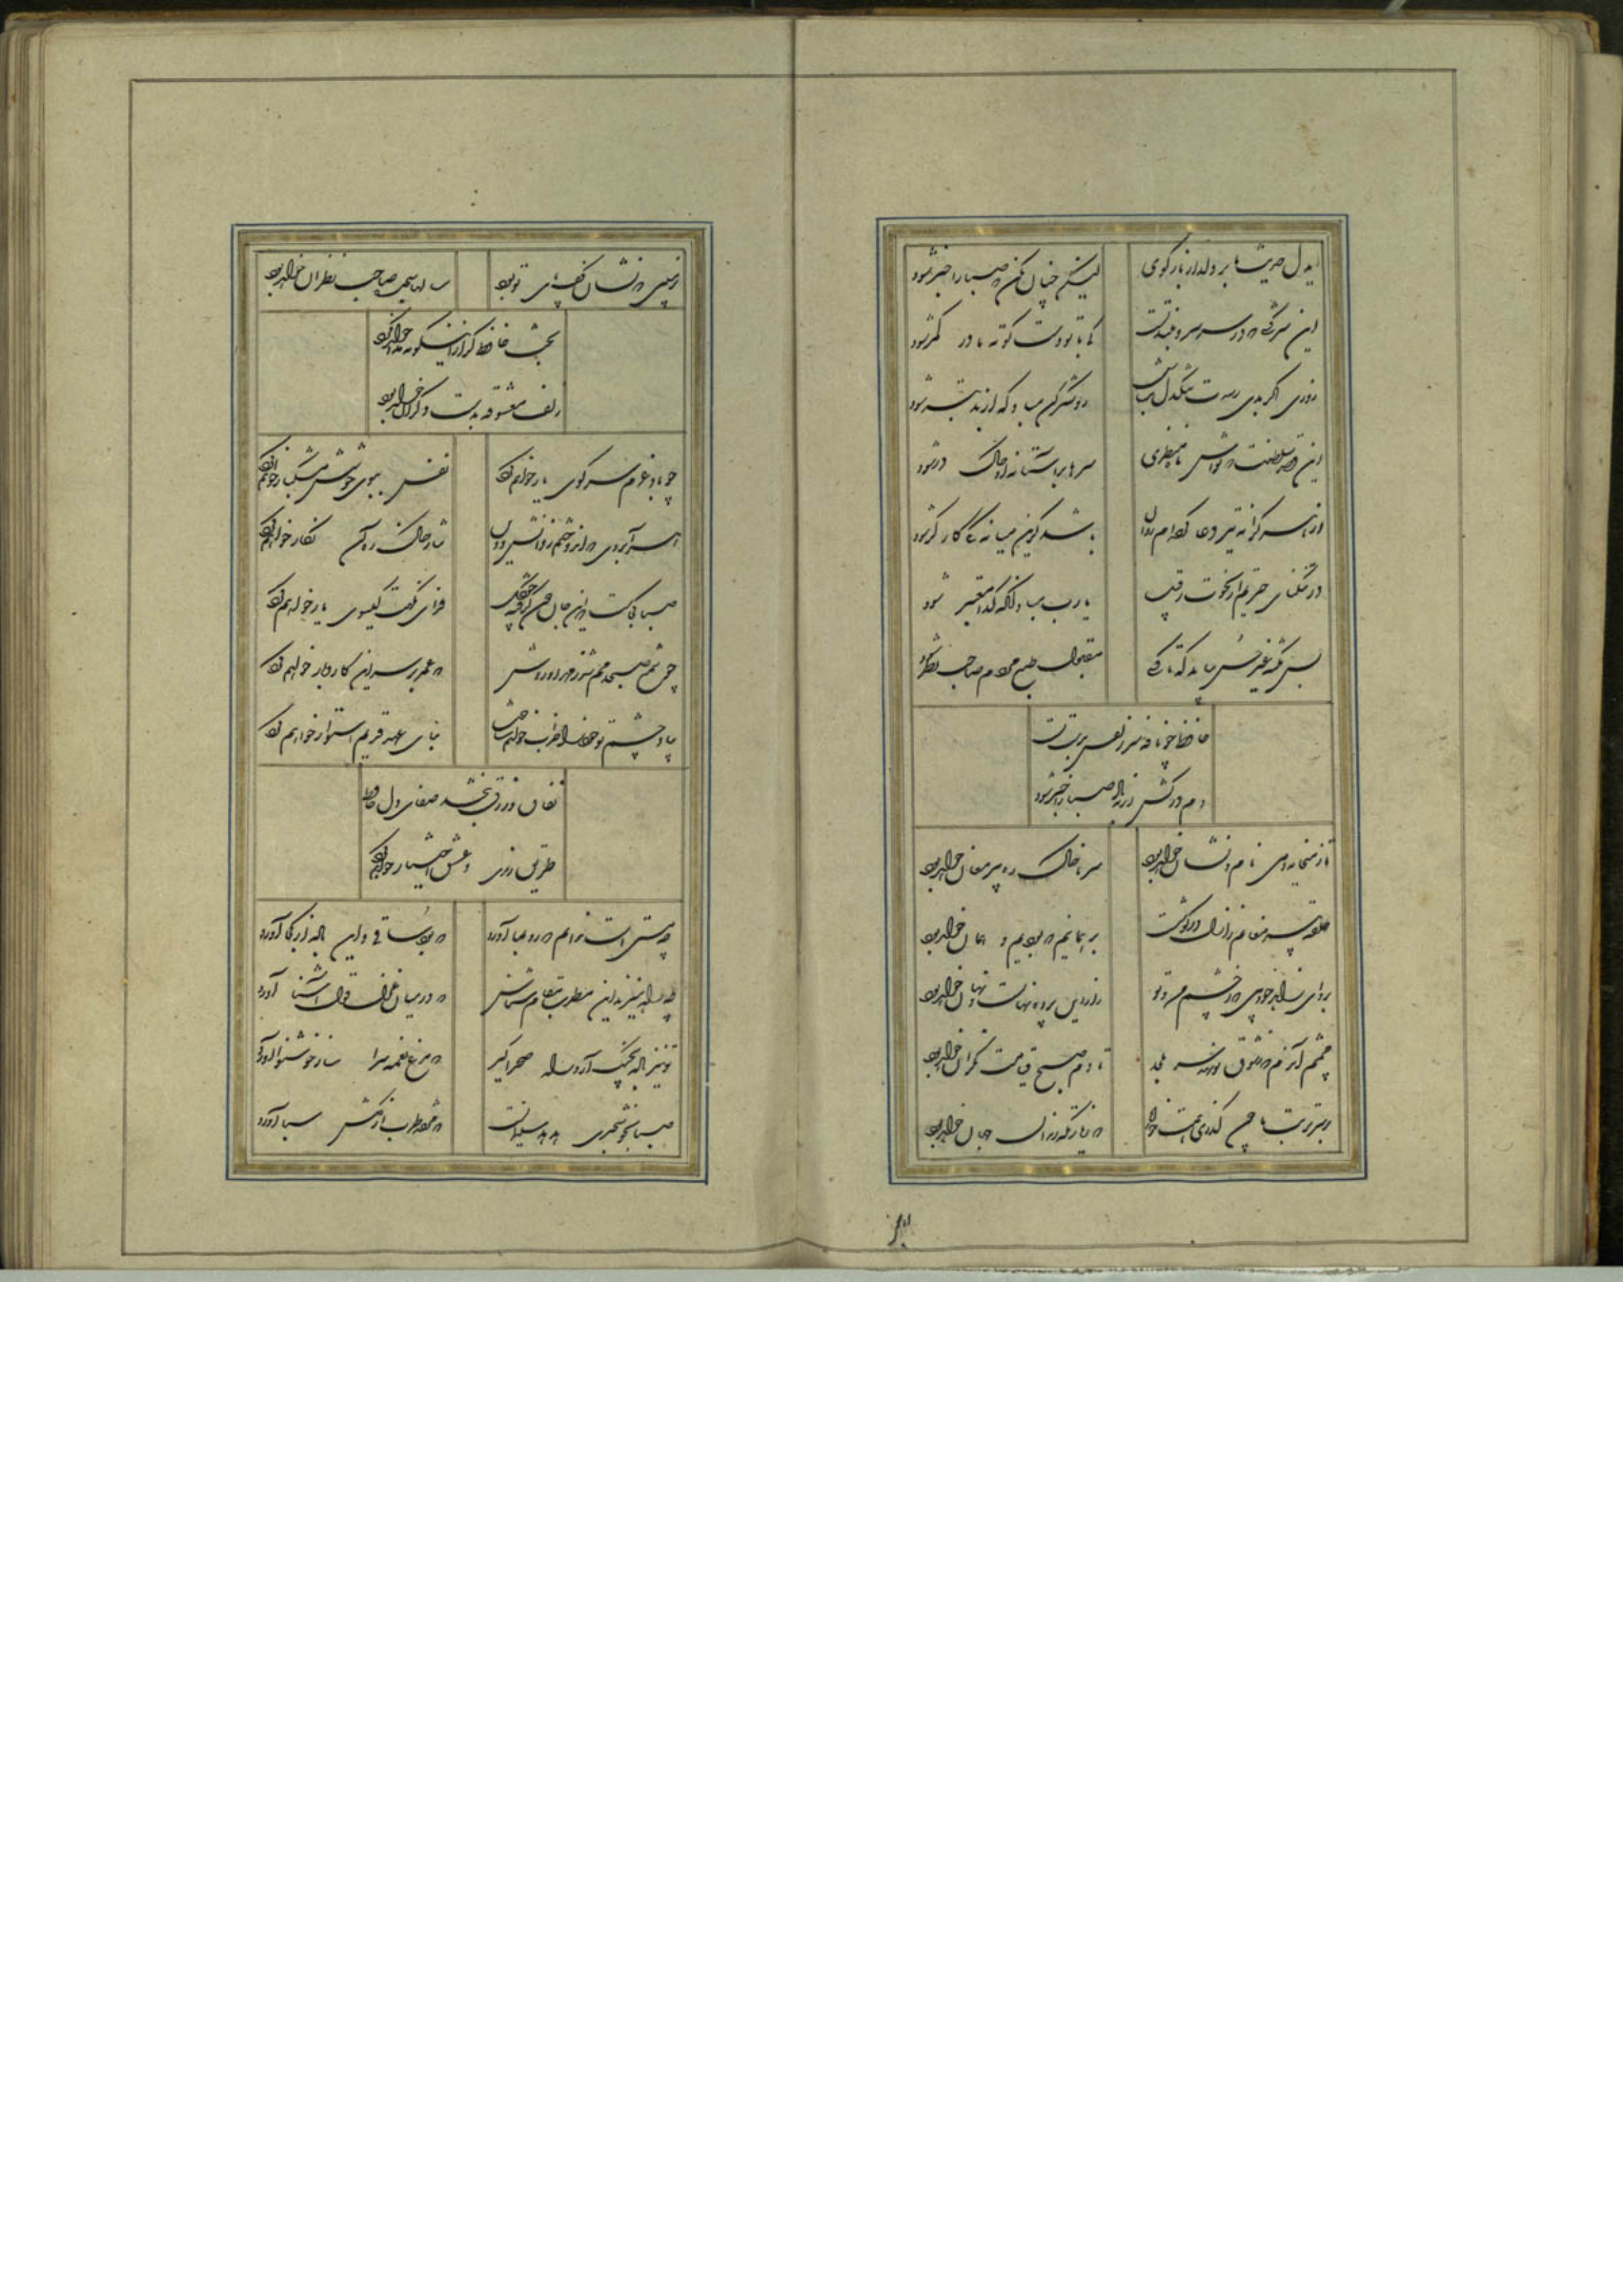 ایدل حدیث ما بر دلدار بازگوی
لیکن چنان مکن که صبا را خبر شود
این سرکشی که در سر سرو بلند تست
کی با تو دست کوته ما در کمر شود
روزی اگر غمی رسدت تنگدل مباش
رو شکر کن مباد که از بد بتر شود
این قصر سلطنت که تواش ماه منظری
سرها بر آستانه او خاک در شود
از هر کرانه تیر دعا کرده‌ام روان
باشد کزین میانه یکی کارگر شود
در تنگنای حیرتم از نخوت رقیب
یا رب مباد آنکه گدا معتبر شود
بس نکته غیر حسن بباید که تا کسی
مقبول طبع مردم صاحب نظر شود
حافظ چو نافه سر زلفش بدست تست
دم درکش ار نه باد صبا را خبر شود
تا ز میخانه و می نام و نشان خواهد بود
سر ما خاک ره پیر مغان خواهد بود
حلقه پیر مغانم ز ازل در گوشست
بر همانیم که بودیم و همان خواهد بود
برو ای زاهد خودبین که ز چشم من و تو
راز این پرده نهانست و نهان خواهد بود
چشمم آن دم که ز شوق تو نهد سر بلحد
تا دم صبح قیامت نگران خواهد بود
بر سر تربت ما چون گذری همت خواه
که زیارتگه رندان جهان خواهد بود
بر
بر زمینی که نشان کف پای تو بود
سالها سجده صاحب نظران خواهد بود
بخت حافظ گر ازینگونه مدد خواهد کرد
زلف معشوقه بدست دگران خواهد بود
چو باد عزم سر کوی یار خواهم کرد
نفس ببوی خوشش مشکبار خواهم کرد
هر آبروی که اندوختم ز دانش و دین
نثار خاک ره آن نگار خواهم کرد
صبا کجاست که این جان خون گرفته چو گل
فدای نکهت گیسوی یار خواهم کرد
چو شمع صبحدمم شد ز مهر او روشن
که عمر در سر این کار و بار خواهم کرد
بیاد چشم تو خود را خراب خواهم ساخت
بنای عهد قدیم استوار خواهم کرد
نفاق و زرق نبخشد صفای دل حافظ
طریق رندی و عشق اختیار خواهم کرد
چه مستیست ندانم که رو بما آورد
که بود ساقی و این باده از کجا آورد
چه راه میزند این مطرب مقام شناس
که در میان غزل قول آشنا آورد
تو نیز باده بچنگ آر و راه صحرا گیر
که مرغ نغمه سرا ساز خوش نوا آورد
صبا بخوش خبری هدهد سلیمانست
که مژده طرب از گلشن سبا آورد